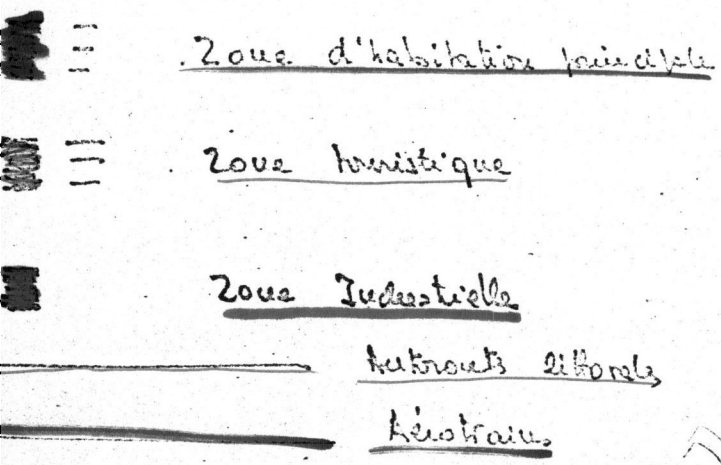 Zone d'habitation principale
Zone touristique
Zone Industrielle
Autoroute littorale
Aérotrain